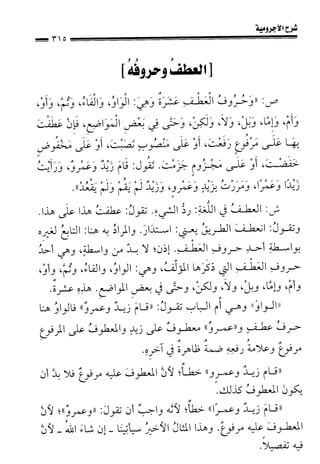 شرح الآجرومية
٣١٥
[العطفُ وحروفُهُ]
ص: «وَحُرُوفُ الْعَطْفِ عَشَرَةٌ وَهِيَ: الْوَاوُ، وَالْفَاءُ، وَثُمَّ، وَأَوْ،
وَأَمْ، وَإِمَّا، وَبَلْ، وَلَا، وَلَكِنْ، وَحَتَّى فِي بَعْضِ الْمَوَاضِعِ، فَإِنْ عَطَفْتَ
بِهَا عَلَى مَرْفُوعٍ رَفَعْتَ، أَوْ عَلَى مَنْصُوبٍ نَصَبْتَ، أَوْ عَلَى مَخْفُوضٍ
خَفَضْتَ، أَوْ عَلَى مَجْزُومٍ جَزَمْتَ. تَقُولُ: قَامَ زَيْدٌ وَعَمْرٌو، وَرَأَيْتُ
زَيْدًا وَعَمْرًا، وَمَرَرْتُ بِزَيْدٍ وَعَمْرٍو، وَزَيْدٌ لَمْ يَقُمْ وَلَمْ يَقْعُدْ».
ش: العطفُ في اللُّغَةِ: ردُّ الشيءِ. تقولُ: عطفتُ هذا على هذا.
وتقولُ: انعطفَ الطريقُ يعني: استدارَ. والمرادُ به هنا: التابعُ لغيرِه
بواسطةِ أحدِ حروفِ العَطْفِ. إذن؛ لا بدَّ من واسطةٍ، وهي أحدُ
حروفِ العَطْفِ التي ذكرَها المؤلِّفُ، وهي: الواوُ، والفاءُ، وثُمَّ، وأوْ،
وأمْ، وإمَّا، وبلْ، ولا، ولكنْ، وحتى في بعضِ المواضعِ. هذِهِ عشرةٌ.
«الواوُ» وهي أم البابِ تقولُ: «قـامَ زيـدٌ وعمروٌ» فالواوُ هنا
حرفُ عطفٍ و«عمروٌ» معطوفٌ على زيدٍ والمعطوفُ على المرفوعِ
مرفوعٌ وعلامةُ رفعِهِ ضمةٌ ظاهرةٌ في آخرِهِ.
«قام زيـد وعمـرٍو» خطأٌ؛ لأنَّ المعطوفَ عليه مرفوعٌ فلا بدَّ أن
يكونَ المعطوفُ كذلك.
«قـامَ زيـدٌ وعمرًا» خطأٌ؛ لأنَّه واجبٌ أن تقولَ: «وعمروٌ»؛ لأنَّ
المعطـوفَ عليه مرفوعٌ. وهذا المثالُ الأخيرُ سيأتينَا ـ إن شاءَ اللهُ ـ أن
فيه تفصيلاً.